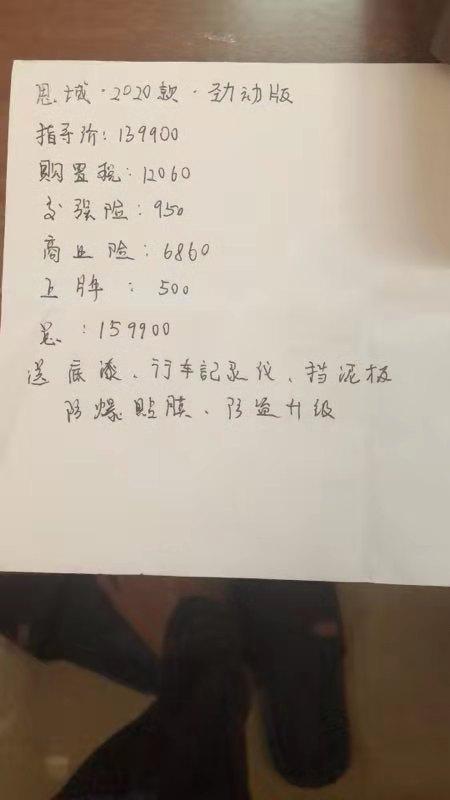 思域·2020款·劲动版
指导价:139900
购置税:12060
交强险:950
商业险:6860
上牌:500
总:159900
送底漆、行车記录仪、挡泥板
防爆贴膜、防盗升级